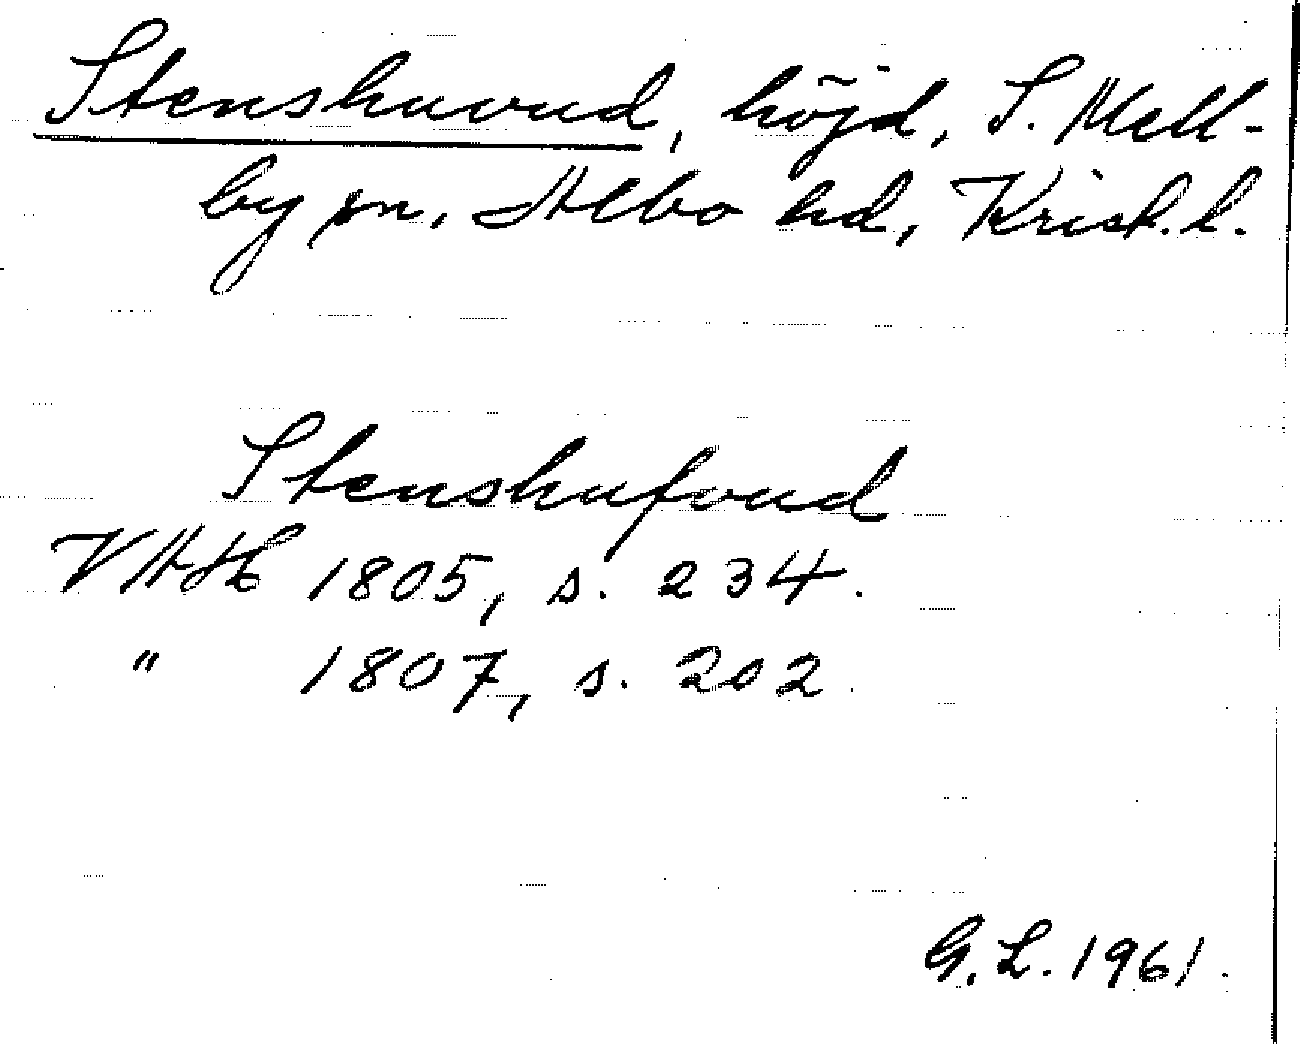 Stenshuvud, höjd, S. Mell-
by sn, Albo hd, Krist. l.
Stenshufvud
VAH 1805, s. 234.
" 1807, s. 202.
G. L. 1961.